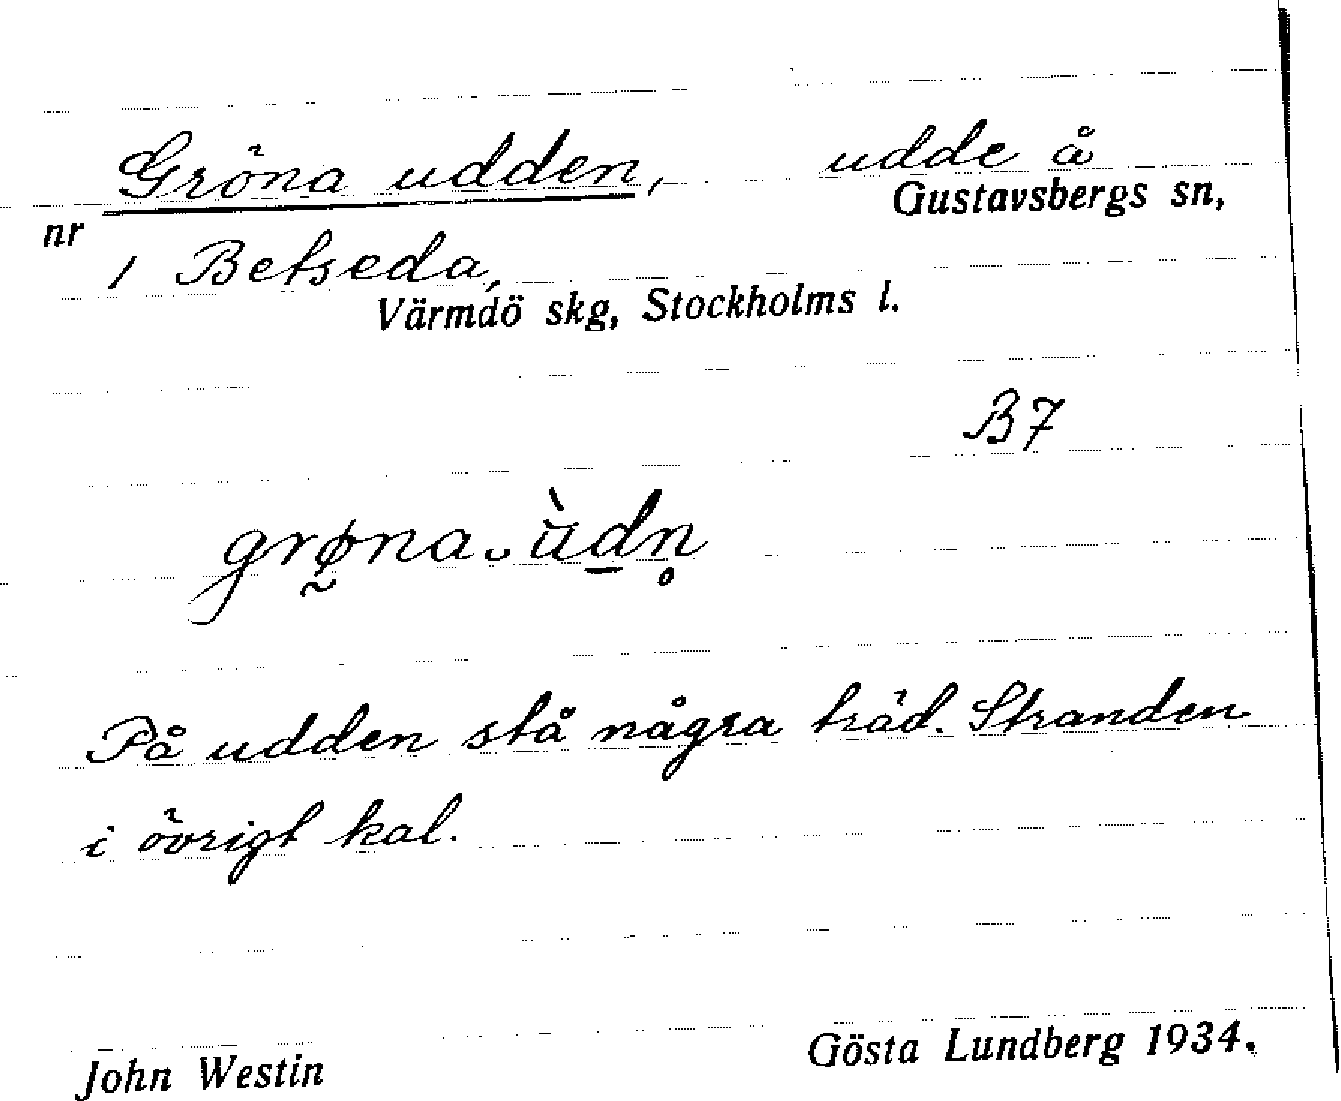 Gröna udden, udde å
Gustavsbergs sn,
nr
1 Betseda,
Värmdö skg, Stockholms l.
B7
grø̰na‿ù̄d̲n̥
På udden stå några träd. Stranden
i övrigt kal.
John Westin Gösta Lundberg 1934.